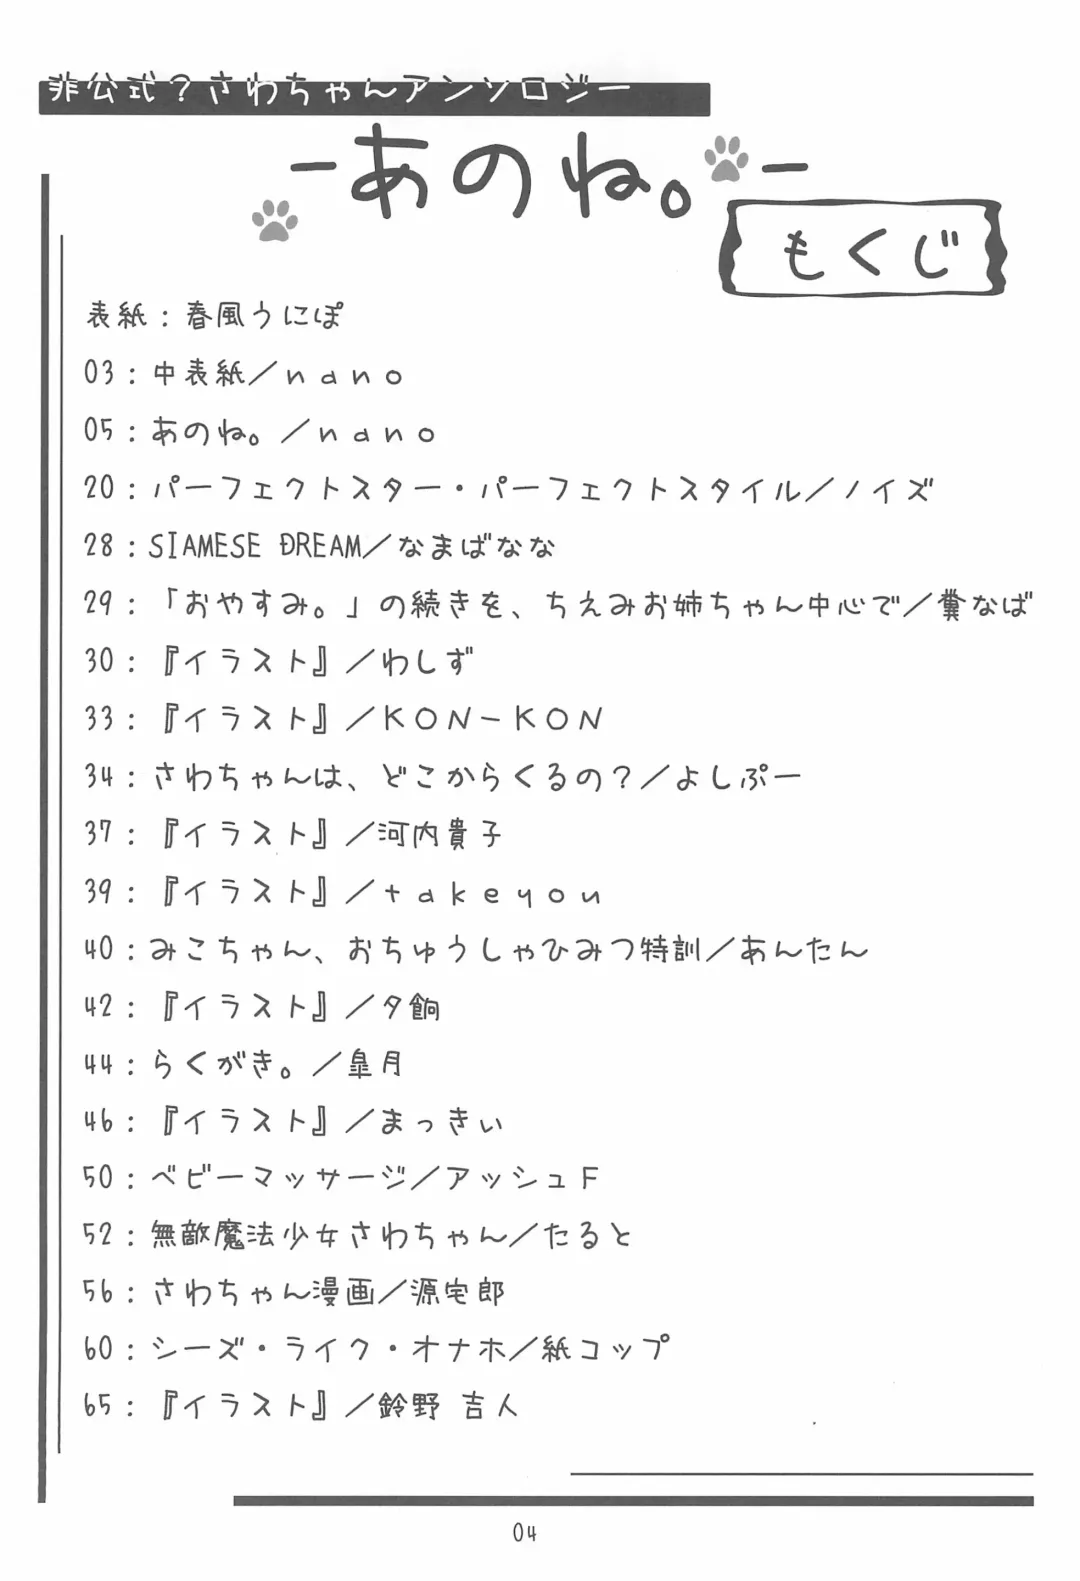 非公式？さわちゃんアンソロジー
-あのね。-
もくじ
表紙：春風うにぽ
03：中表紙／ｎａｎｏ
05：あのね。／ｎａｎｏ
20：パーフェクトスター・パーフェクトスタイル／ノイズ
28：SIAMESE DREAM／なまばなな
29：「おやすみ。」の続きを、ちえみお姉ちゃん中心で／糞なば
30：『イラスト』／わしず
33：『イラスト』／ＫＯＮ－ＫＯＮ
34：さわちゃんは、どこからくるの？／よしぷー
37：『イラスト』／河内貴子
39：『イラスト』／ｔａｋｅｙｏｕ
40：みこちゃん、おちゅうしゃひみつ特訓／あんたん
42：『イラスト』／夕餉
44：らくがき。／皐月
46：『イラスト』／まっきぃ
50：ベビーマッサージ／アッシュＦ
52：無敵魔法少女さわちゃん／たると
56：さわちゃん漫画／源宅郎
60：シーズ・ライク・オナホ／紙コップ
65：『イラスト』／鈴野 吉人
04